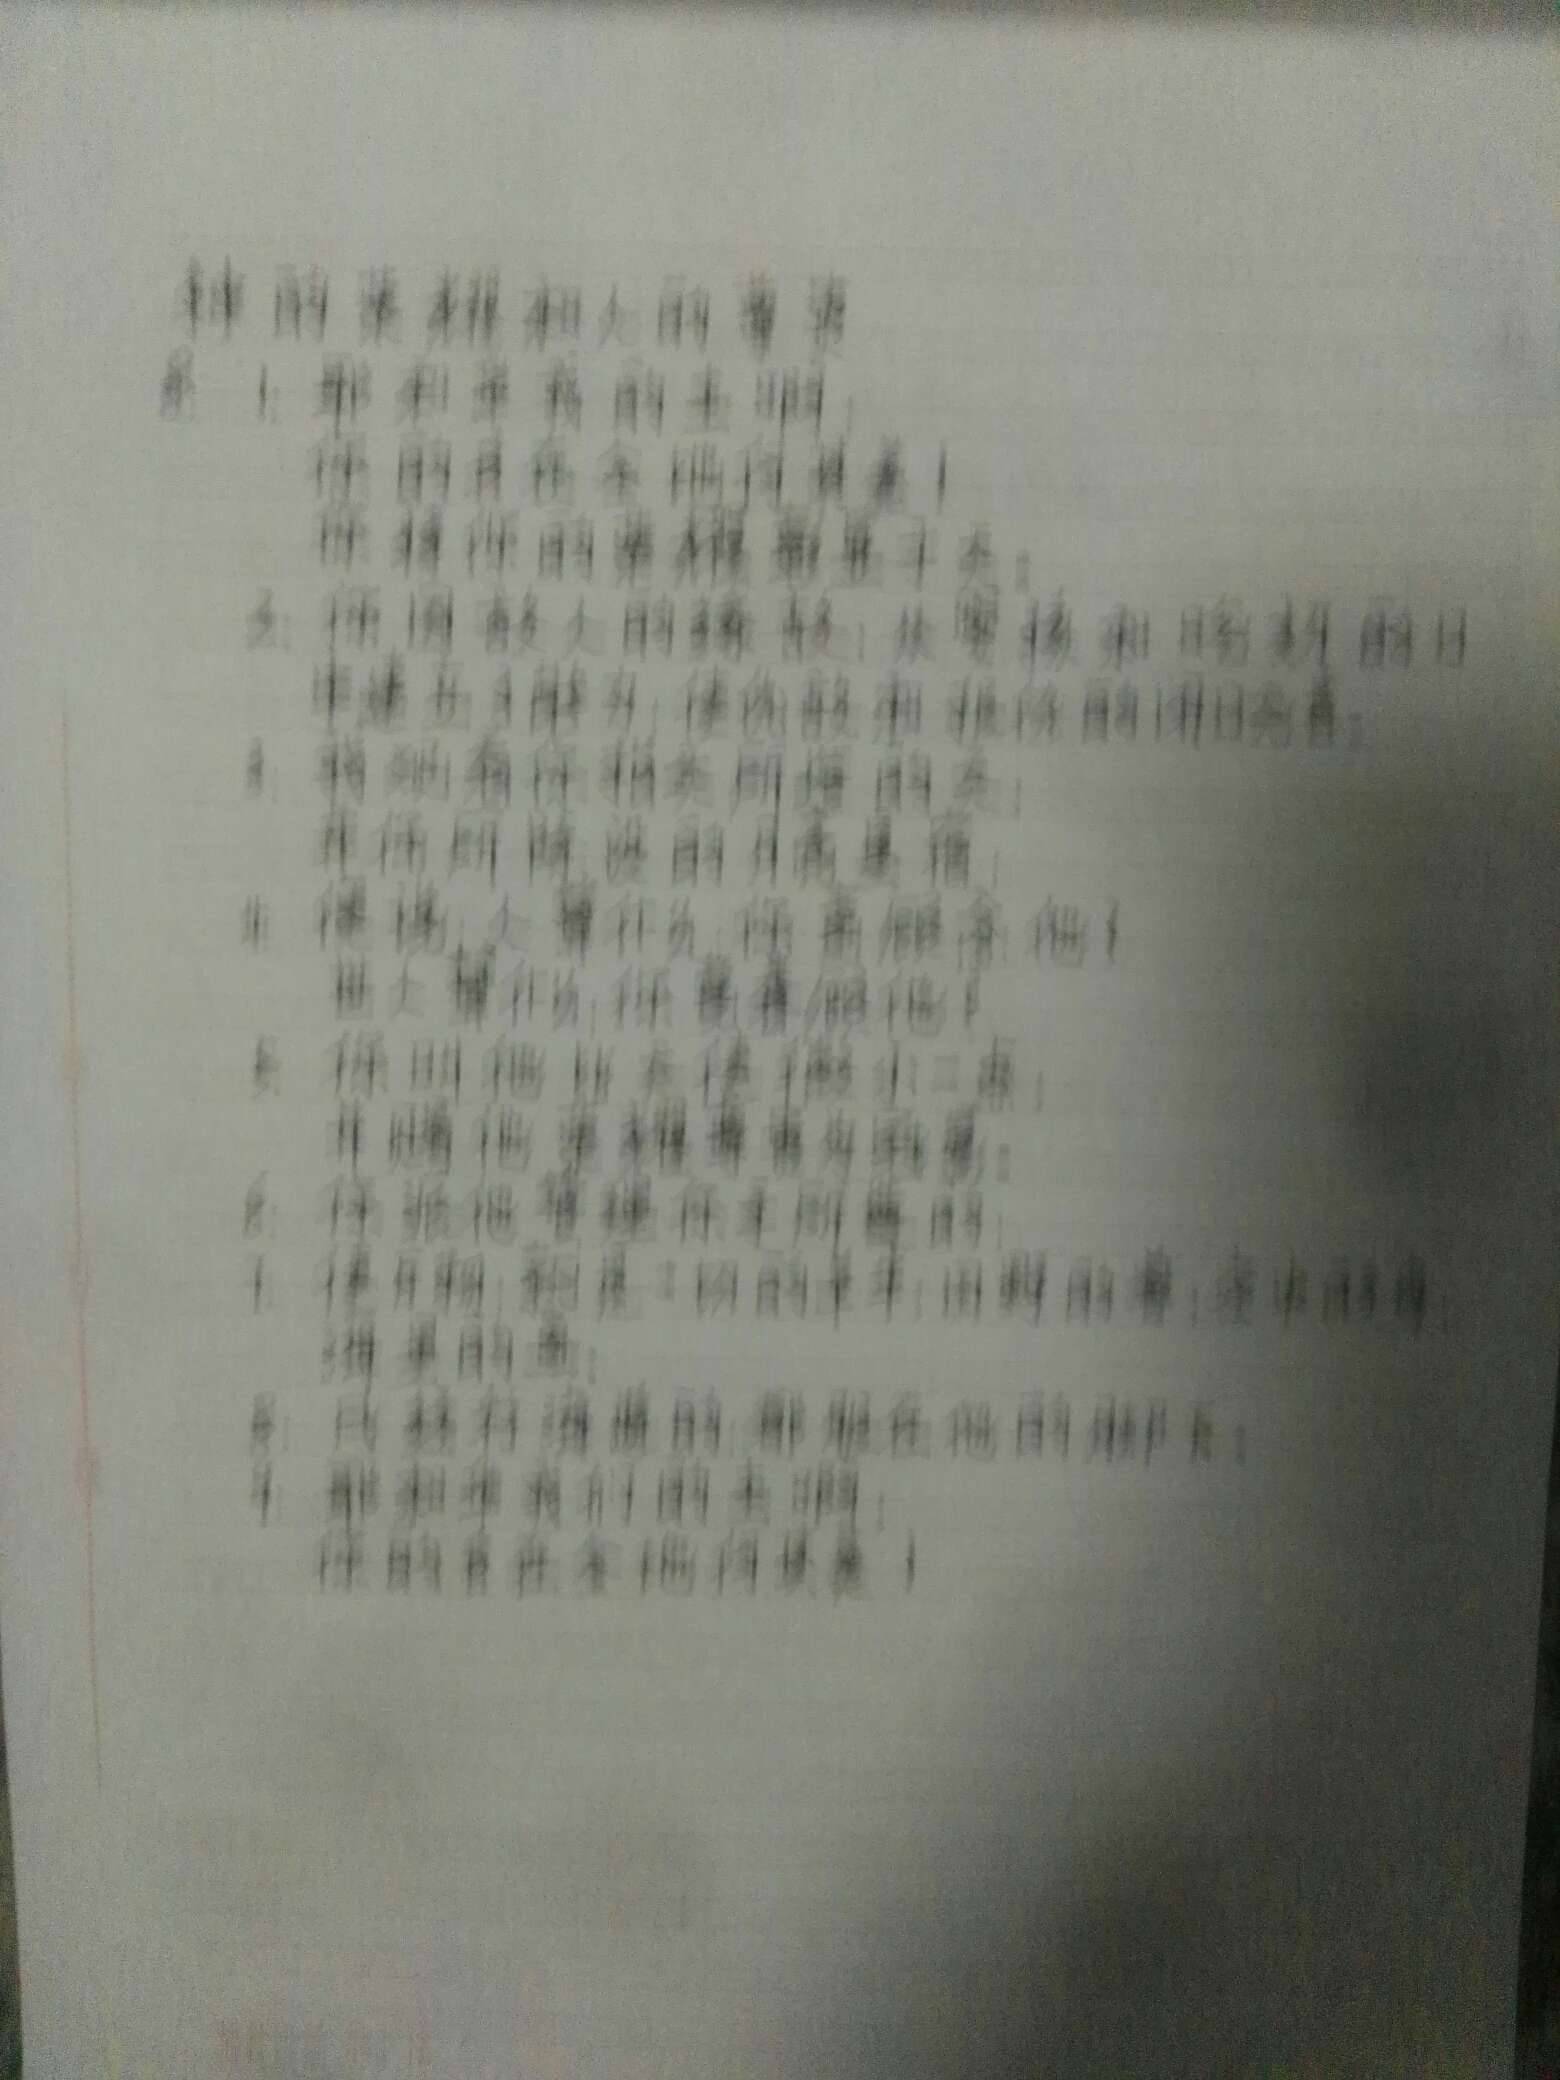 神的荣耀和人的尊贵
8: 1: 耶和华我的主啊,
你的名在全地何其美!
你将你的荣耀彰显于天。
2: 你因敌人的缘故,从婴孩和吃奶的口
中建立了能力,使仇敌和报仇的闭口无言。
3: 我观看你指头所造的天,
并你所陈设的月亮星宿,
4: 便说,人算什么,你竟顾念他!
世人算什么,你竟眷顾他!
5: 你叫他比天使微小一点,
并赐他荣耀尊贵为冠冕。
6: 你派他管理你手所造的,
7: 使万物,就是一切的牛羊,田野的兽,空中的鸟,
海里的鱼,
8: 凡经行海道的,都服在他的脚下。
9: 耶和华我们的主啊,
你的名在全地何其美!